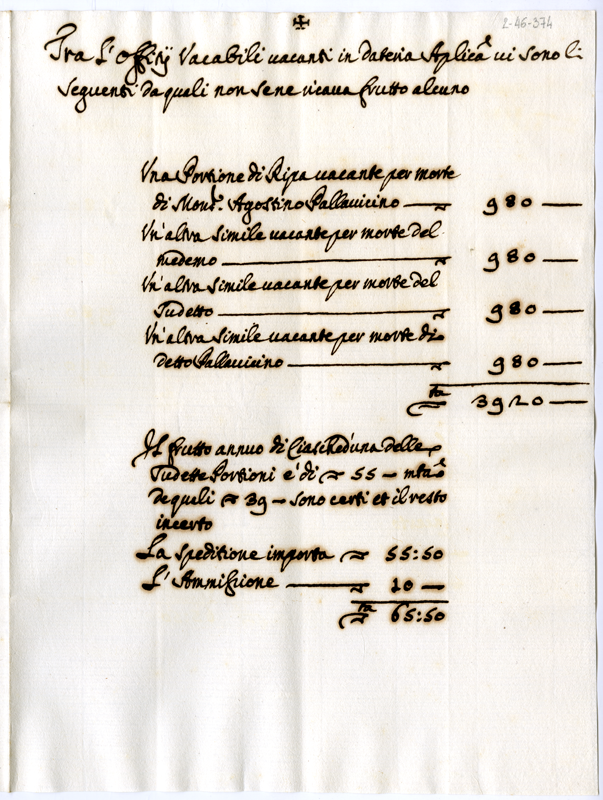 ✠
2-46-374
Tra L'offitij Vacabili uacanti in dateria Aplicã ui sono li
Seguenti da quali non Sene ricaua frutto alcuno
Una Portione di Ripa uacante per morte
di Monr. Agostino Pallauicino — 980 —
Un'altra Simile uacante per morte del
medemo — 980 —
Un'altra Simile uacante per morte del
Sudetto — 980 —
Un'altra Simile uacante per morte di
detto Pallauicino — 980 —
3920 —
Il frutto annuo di Ciascheduna delle
Sudette Portioni e' di 55 —
de quali 39 — sono certi et il resto
incerto
La speditione importa 55:50
L'Ammissione — 10 —
65:50